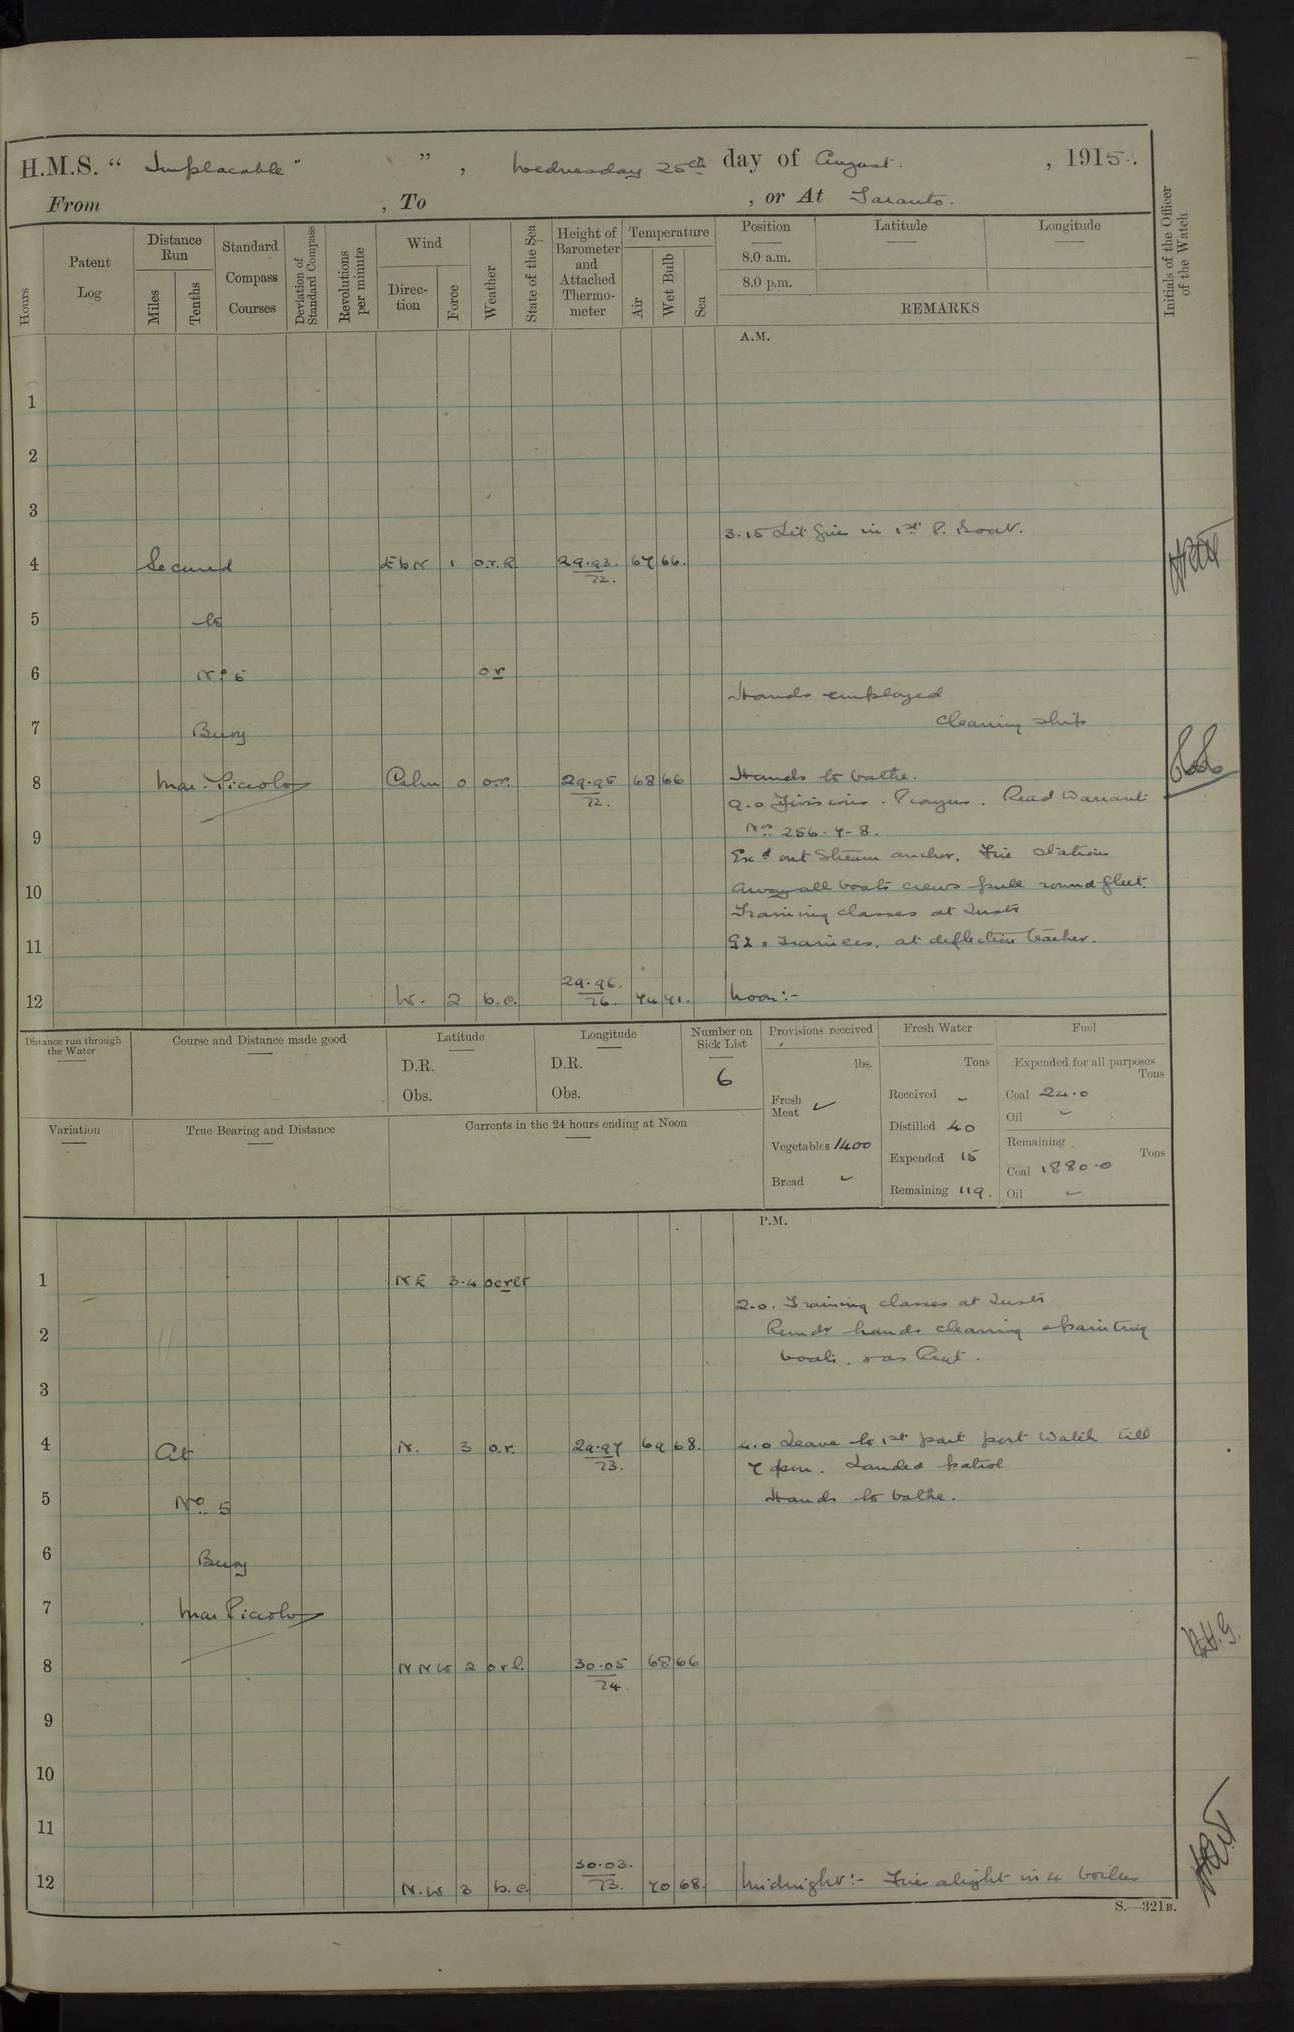 H.M.S. “ Implacable ” ” , Wednesday 25th day of August. , 1915.
From , To , or At Taranto.
Hours
Patent Log
Distance Run
Miles
Tenths
Standard Compass Courses
Deviation of Standard Compass
Revolutions per minute
Wind
Direction
Force
Weather
State of the Sea
Height of Barometer and Attached Thermometer
Temperature
Air
Wet Bulb
Sea
Position
8.0 a.m.
8.0 p.m.
Latitude
Longitude
REMARKS
Initials of the Officer of the Watch
A.M.
1
2
3
3.15 Lit fire in 1st P. Boat.
4 Secured E b N 1 o.r.l. 29.93. 72. 67 66.
5 to
6 No 5 o r
Hands employed
7 Buoy cleaning ship
8 Mar Piccolo Calm 0 o.r. 29.95 72. 68 66 Hands to bathe.
9.0 Divisions. Prayers. Read Warrant
9 Nos 256-7-8.
Exd out Stream anchor. Fire Stations
10 Away all boats crews pull round fleet.
Training classes at Instr
11 G.L. Trainers, at deflection teacher.
12 W. 2 b.c. 29.96. 76. 74 71. Noon:-
Distance run through the Water
Course and Distance made good
Latitude
D.R.
Obs.
Longitude
D.R.
Obs.
Number on Sick List
6
Provisions received
lbs.
Fresh Meat
Vegetables 1400
Bread
Fresh Water
Tons
Received -
Distilled 40
Expended 15
Remaining 119.
Fuel
Expended for all purposes
Tons
Coal 24.0
Oil
Remaining
Tons
Coal 1880.0
Oil
Variation
True Bearing and Distance
Currents in the 24 hours ending at Noon
P.M.
1 N E 3.4 ocrlt
2.0. Training classes at Instr
2 Remdr hands cleaning & painting
boats, & as Reqt.
3
4 At N. 3 o.r. 29.97 73. 69 68. 4.0 Leave to 1st part port Watch till
7 pm. Landed patrol
5 No 5 Hands to bathe.
6 Buoy
7 Mar Piccolo
8 N N W 2 o r l. 30.05 74. 68 66 H.H.G.
9
10
11
12 N.W 3 b.c. 30.03. 73. 70 68. Midnight:- Fires alight in 4 boilers
S.—321B.